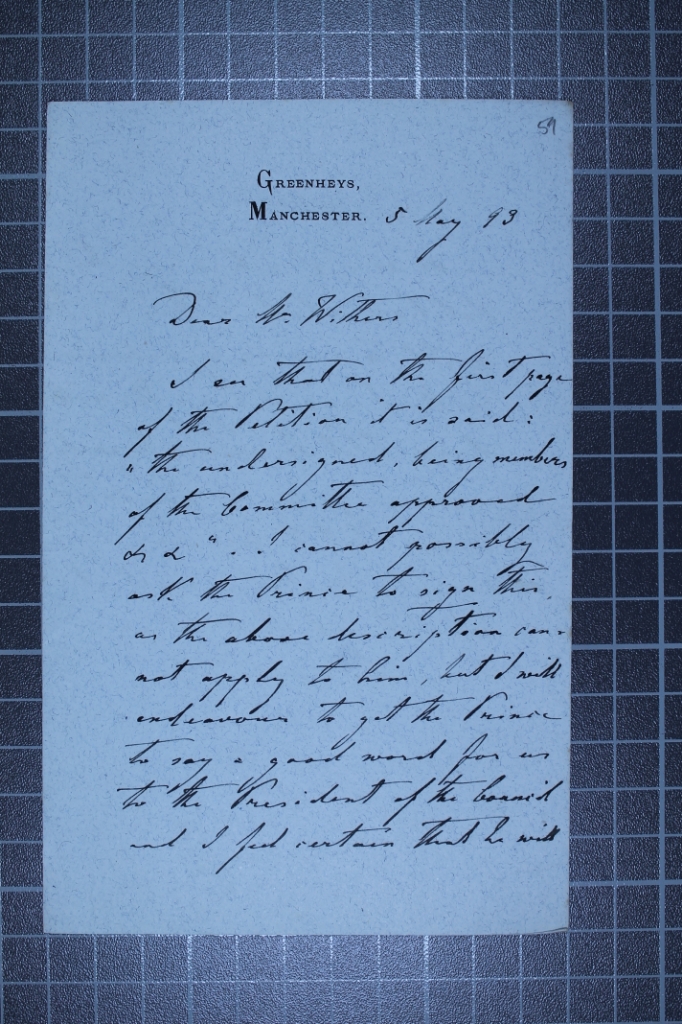 59
GREENHEYS,
MANCHESTER. 5 May 93
Dear Mr. Withers
I see that on the first page
of the Petition it is said:
"the undersigned, being members
of the Committee approved
&c &c". I cannot possibly
ask the Prince to sign this,
as the above description can-
not apply to him, but I will
endeavour to get the Prince
to say a good word for us
to the President of the Council
and I feel certain that he will